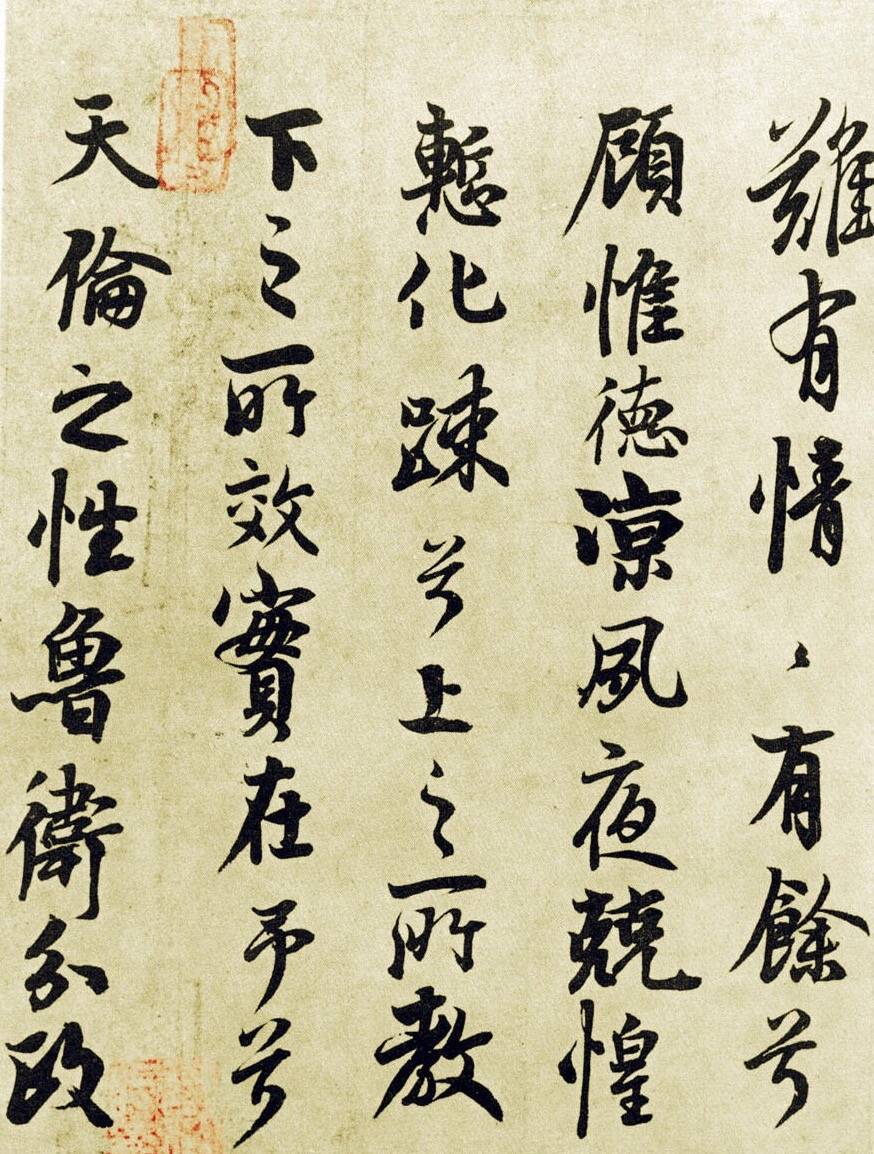 難有情、有餘兮
顧惟德涼夙夜兢惶
慙化踈兮上之所教
下之所效實在予兮
天倫之性魯衛分政